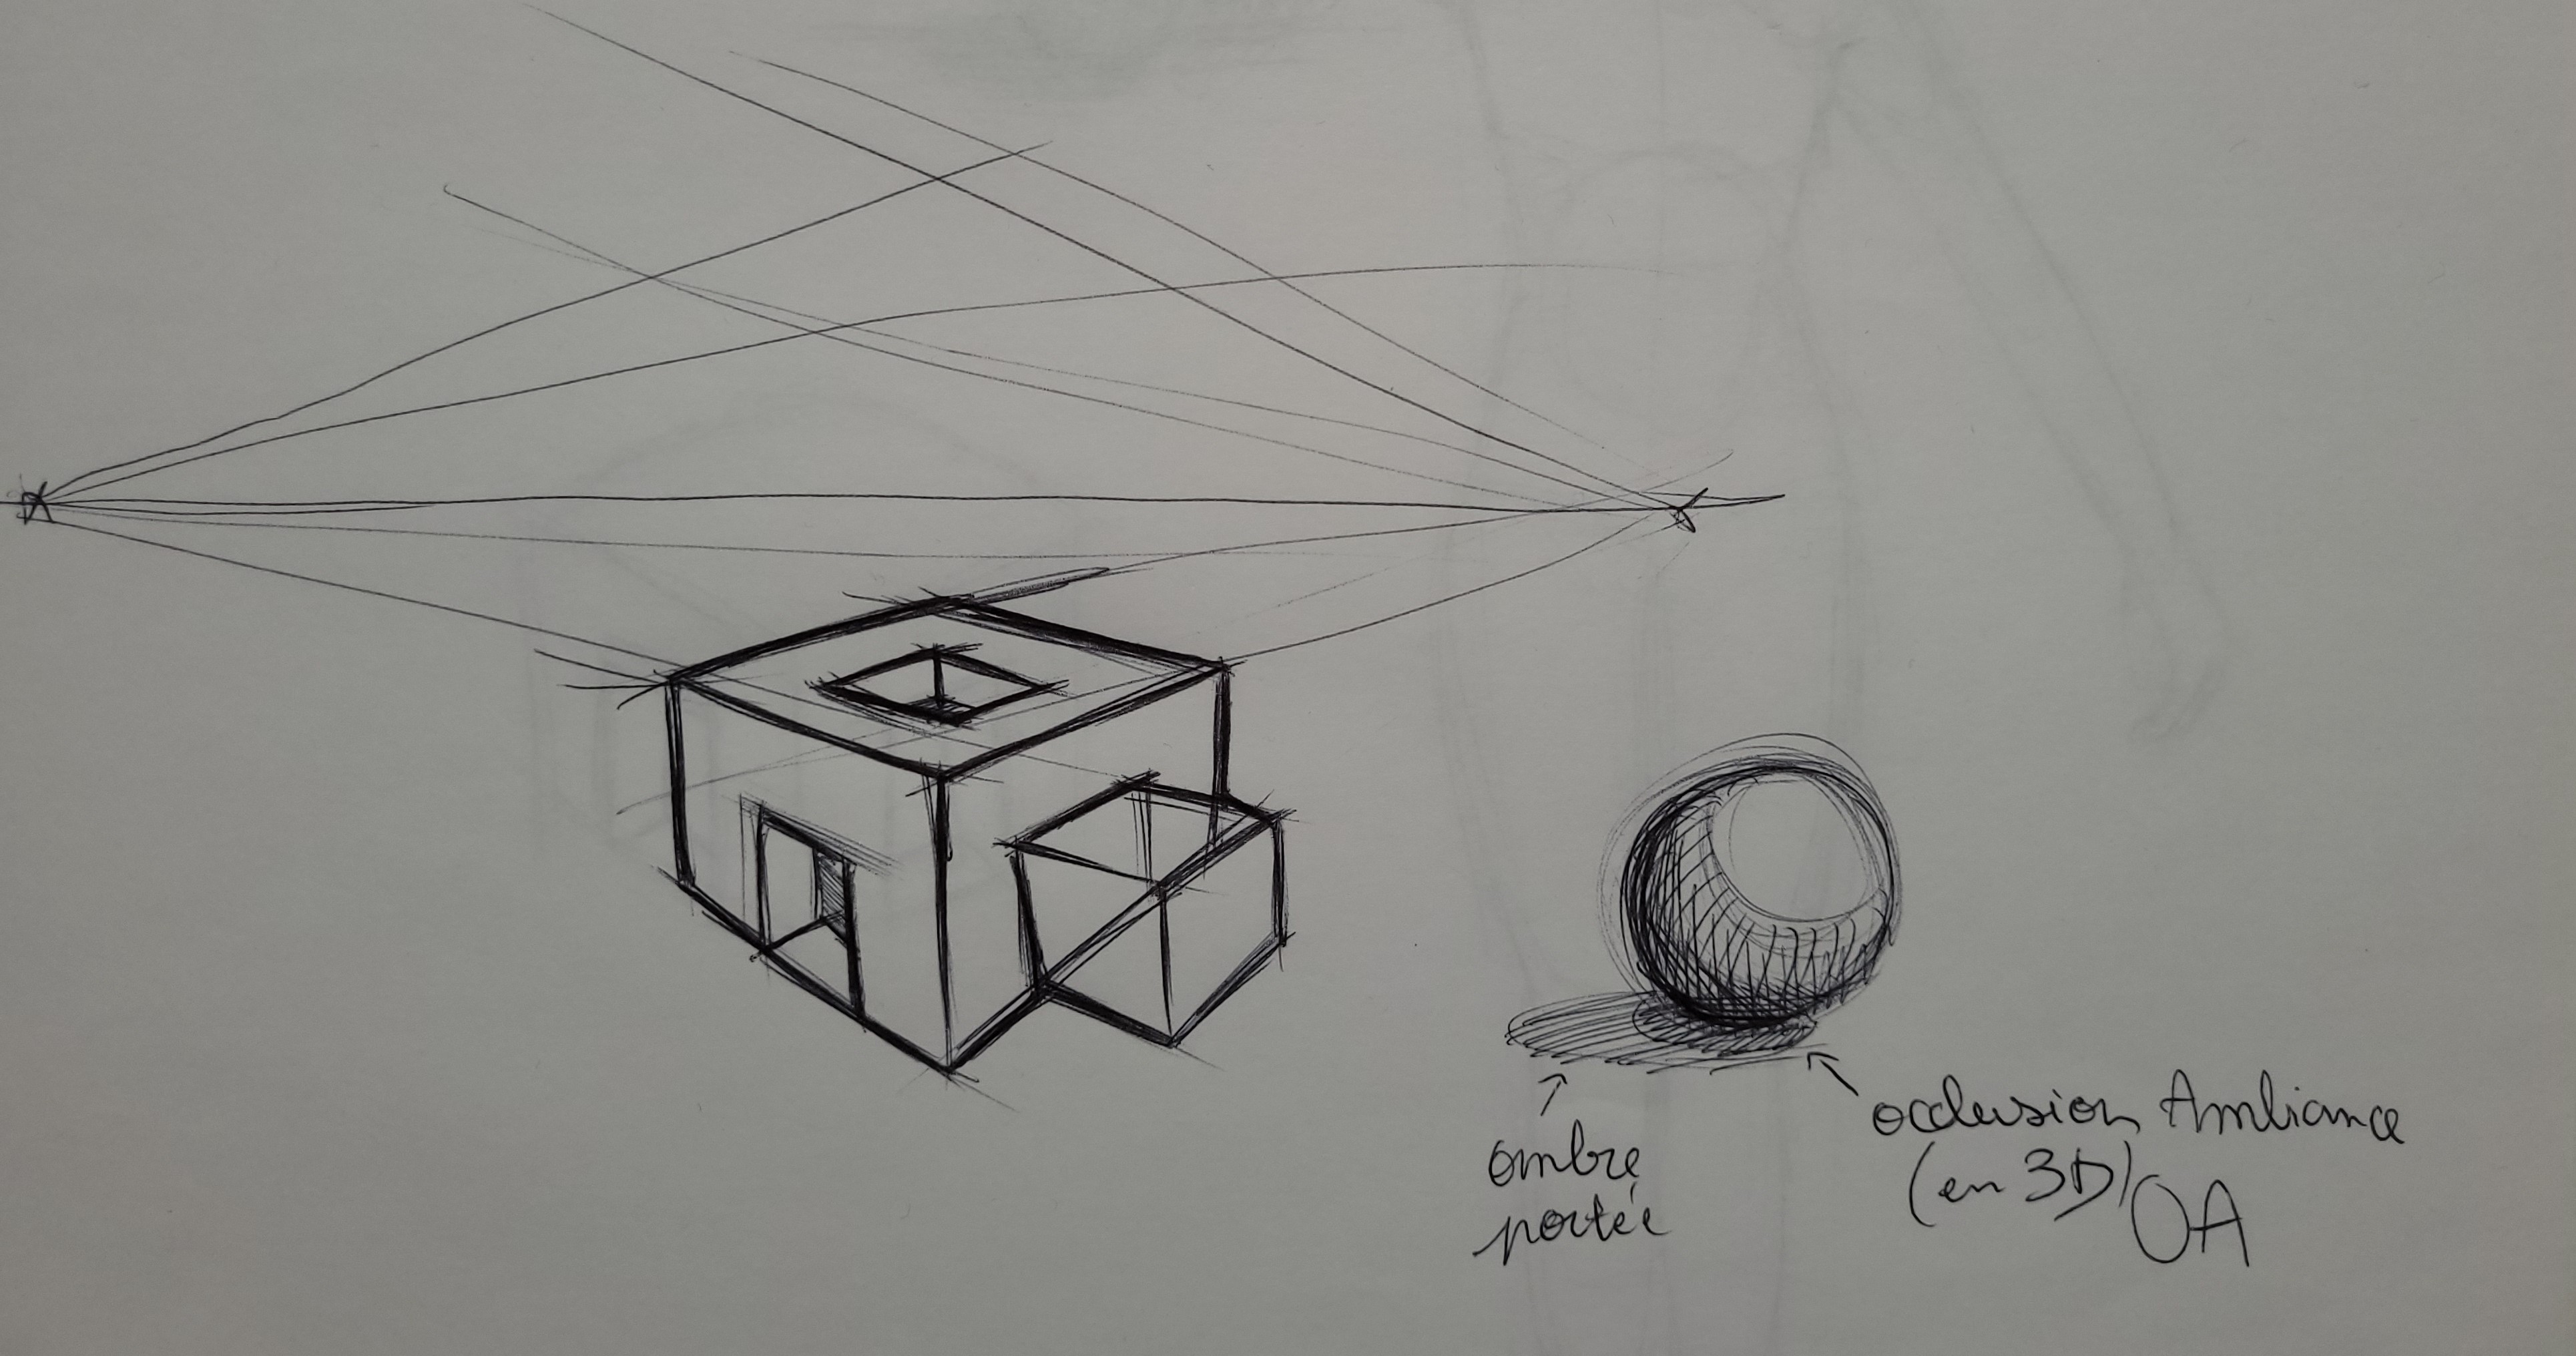 ombre
portée
occlusion Ambiance
(en 3D)
OA